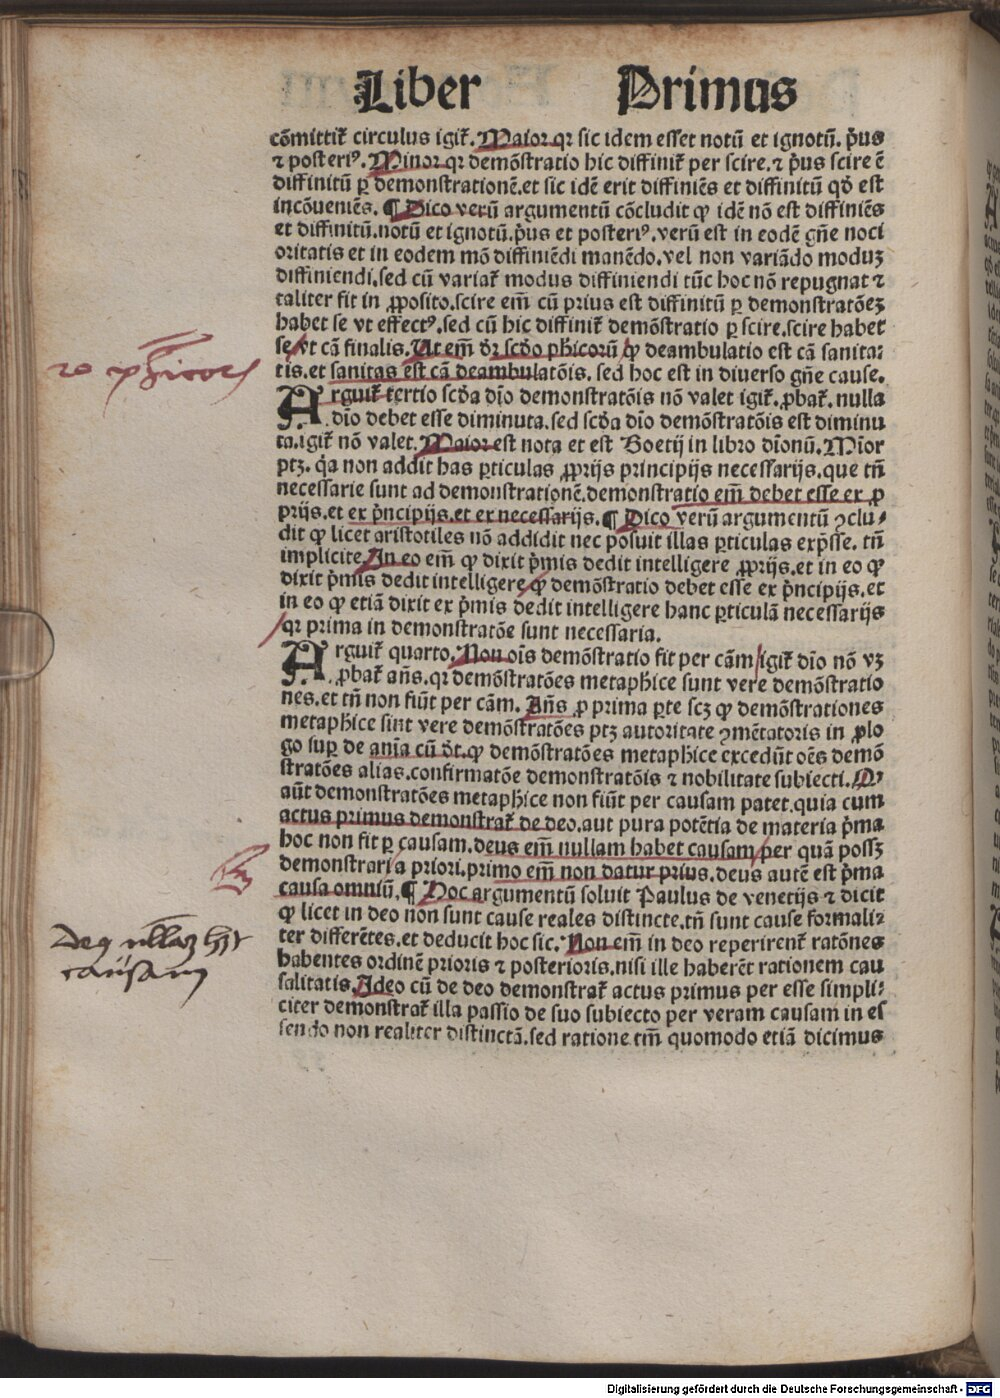 Liber Primus
cōmittit᷑ circulus igit᷑. Maior qꝛ sic idem esset notū et ignotū. p̄us
⁊ posteriꝰ. Minor qꝛ demōstratio hic diffinit᷑ per scire. ⁊ p̄us scire ē
diffinitū ꝑ demonstrationē. et sic idē erit diffiniēs et diffinitū qđ est
incōueniēs. ¶ Dico verū argumentū cōcludit ꝙ idē nō est diffiniēs
et diffinitū. notū et ignotū. p̄us et posteriꝰ. verū est in eodē gn̄e noci
oritatis et in eodem mō diffiniēdi manēdo. vel non variādo moduꝫ
diffiniendi. sed cū variat᷑ modus diffiniendi tūc hoc nō repugnat ⁊
taliter fit in ꝓposito. scire em̄ cū prius est diffinitū ꝑ demonstratōeꝫ
habet se vt effectꝰ. sed cū hic diffinit᷑ demōstratio ꝑ scire. scire habet
se vt cā finalis. Ut em̄ dr̄ scďo phīcorū ꝙ deambulatio est cā sanita⸗
tis. et sanitas est cā deambulatōis. sed hoc est in diuerso gn̄e cause.
2o phīcorū
Arguit᷑ tertio scďa dīo demonstratōis nō valet igit᷑. ꝓbat᷑. nulla
dīo debet esse diminuta. sed scďa dīo demōstratōis est diminu
ta. igit᷑ nō valet. Maior est nota et est Boetij in libro dīonū. Mīor
ptꝫ. q̄a non addit has ꝑticulas ꝓprijs principijs necessarijs. que tn̄
necessarie sunt ad demonstrationē. demonstratio em̄ debet esse ex ꝓ
prijs. et ex p̄ncipijs. et ex necessarijs. ¶ Dico verū argumentū ꝯclu⸗
dit ꝙ licet aristotiles nō addidit nec posuit illas ꝑticulas exp̄sse. tn̄
implicite. In eo em̄ ꝙ dixit p̄mis dedit intelligere ꝓprijs. et in eo ꝙ
dixit p̄mis dedit intelligere ꝙ demōstratio debet esse ex p̄ncipijs. et
in eo ꝙ etiā dixit ex p̄mis dedit intelligere hanc ꝑticulā necessarijs
qꝛ prima in demonstratōe sunt necessaria.
Arguit᷑ quarto. Non oīs demōstratio fit per cām igit᷑ dīo nō vꝫ
. ꝓbat᷑ an̄s. qꝛ demōstratōes metaphīce sunt vere demōstratio
nes. et tn̄ non fiūt per cām. An̄s ꝓ prima ꝑte scꝫ ꝙ demōstrationes
metaphīce sint vere demōstratōes ptꝫ autoritate ꝯmētatoris in ꝓlo
go suꝑ de anīa cū dt̄. ꝙ demōstratōes metaphīce excedūt oēs demō
stratōes alias. confirmatōe demonstratōis ⁊ nobilitate subiecti. Qꝙ
aūt demonstratōes metaphīce non fiūt per causam patet. quia cum
actus primus demonstrat᷑ de deo. aut pura potētia de materia p̄ma
hoc non fit ꝑ causam. deus em̄ nullam habet causam per quā possꝫ
demonstrari a priori. primo em̄ non datur prius. deus autē est p̄ma
causa omniū. ¶ Hoc argumentū soluit Paulus de venetijs ⁊ dicit
ꝙ licet in deo non sunt cause reales distincte. tn̄ sunt cause formali⸗
ter differētes. et deducit hoc sic. Non em̄ in deo reperirent᷑ ratōnes
Deꝯ nullaꝫ hꝫ
causam
habentes ordinē prioris ⁊ posterioris. nisi ille haberēt rationem cau
salitatis. Ideo cū de deo demonstrat᷑ actus primus per esse simpli⸗
citer demonstrat᷑ illa passio de suo subiecto per veram causam in es
sendo non realiter distinctā. sed ratione tm̄ quomodo etiā dicimus
Digitalisierung gefördert durch die Deutsche Forschungsgemeinschaft - DFG